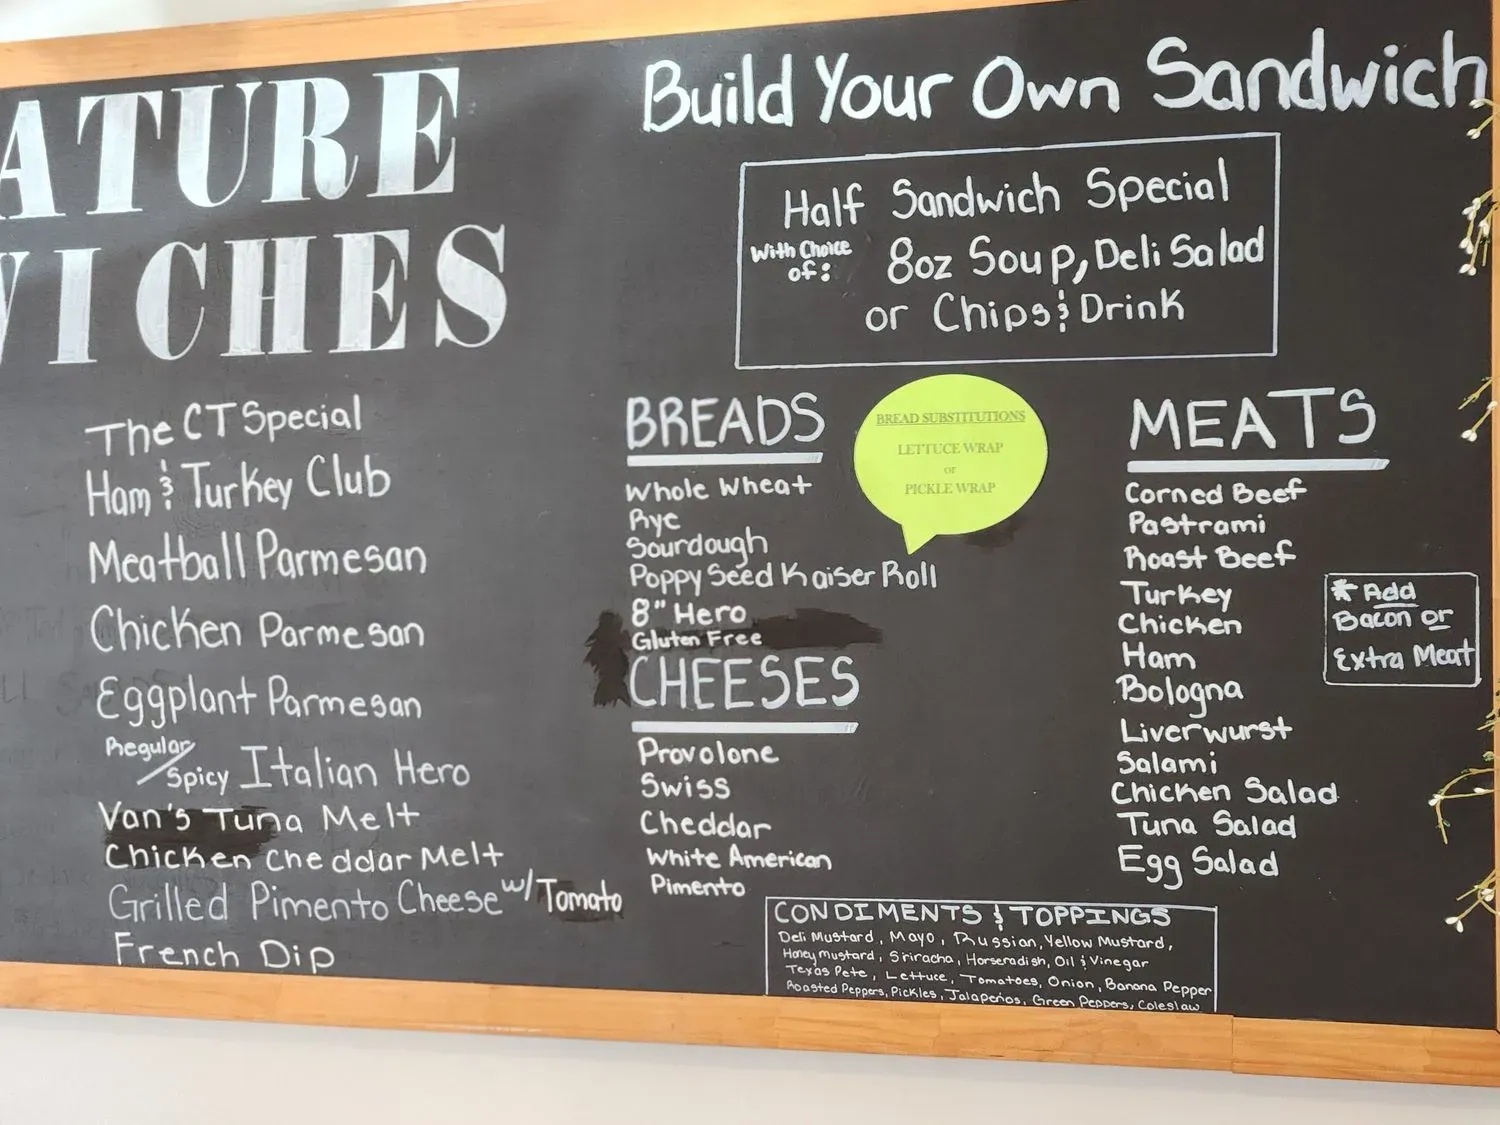 ATURE
WICHES
The CT Special
Ham & Turkey Club
Meatball Parmesan
Chicken Parmesan
Eggplant Parmesan
Regular/Spicy Italian Hero
Van's Tuna Melt
Chicken Cheddar Melt
Grilled Pimento Cheese w/ Tomato
French Dip
Build Your Own Sandwich
Half Sandwich Special
With Choice of: 8oz Soup, Deli Salad
or Chips & Drink
BREADS
Whole Wheat
Rye
Sourdough
Poppy Seed Kaiser Roll
8" Hero
Gluten Free
BREAD SUBSTITUTIONS
LETTUCE WRAP
or
PICKLE WRAP
CHEESES
Provolone
Swiss
Cheddar
White American
Pimento
MEATS
Corned Beef
Pastrami
Roast Beef
Turkey
Chicken
Ham
Bologna
Liverwurst
Salami
Chicken Salad
Tuna Salad
Egg Salad
* Add
Bacon or
Extra Meat
CONDIMENTS & TOPPINGS
Deli Mustard, Mayo, Russian, Yellow Mustard,
Honey mustard, Sriracha, Horseradish, Oil & Vinegar
Texas Pete, Lettuce, Tomatoes, Onion, Banana Pepper
Roasted Peppers, Pickles, Jalapeños, Green Peppers, Coleslaw